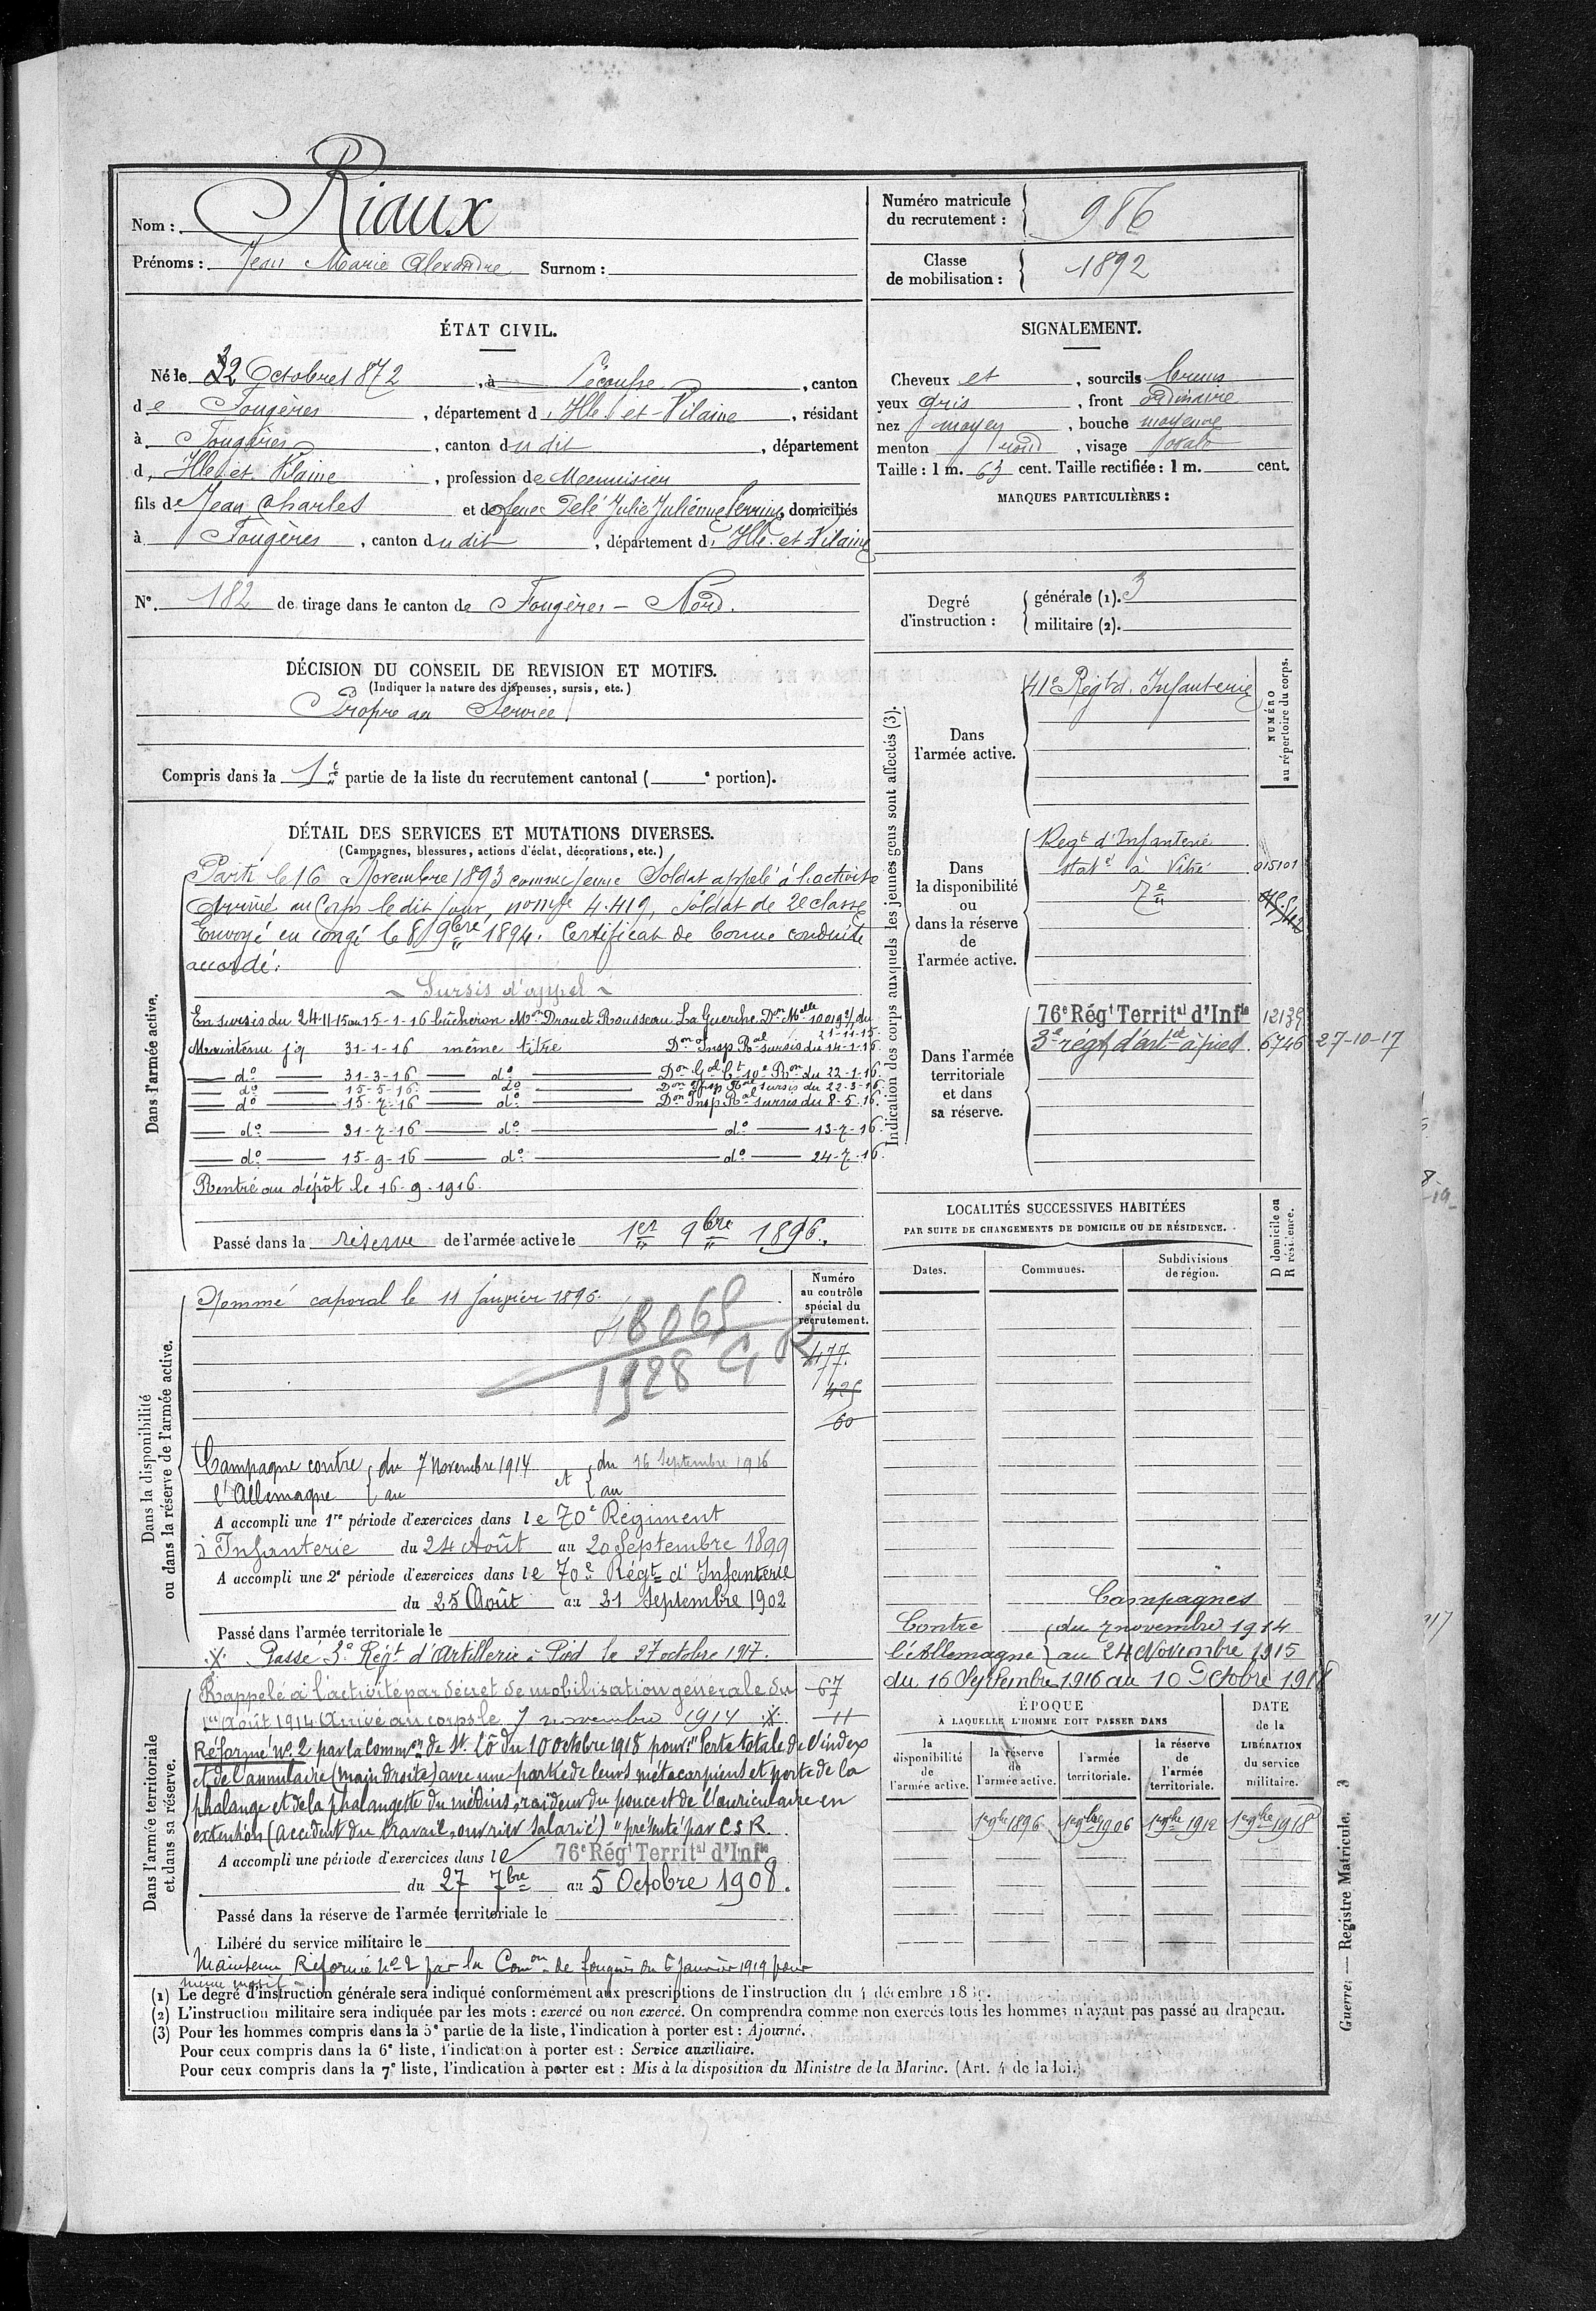 Nom : Riaux
Prénoms : Jean Marie Alexandre Surnom :
Numéro matricule du recrutement : 986
Classe de mobilisation : 1892
ÉTAT CIVIL.
Né le 22 Octobre 1872, à Lécousse, canton
de Fougères, département d'Ille-et-Vilaine, résidant
à Fougères, canton dudit, département
d'Ille et Vilaine, profession de Menuisier
fils de Jean Charles et de feue Delé Julie Julienne Perrine, domiciliés
à Fougères, canton dudit, département d'Ille-et-Vilaine
N° 182 de tirage dans le canton de Fougères - Nord.
SIGNALEMENT.
Cheveux et, sourcils bruns
yeux gris, front ordinaire
nez moyen, bouche moyenne
menton rond, visage ovale
Taille : 1 m. 63 cent. Taille rectifiée : 1 m. cent.
MARQUES PARTICULIÈRES :
Degré d'instruction : générale (1). 3
militaire (2).
DÉCISION DU CONSEIL DE REVISION ET MOTIFS.
(Indiquer la nature des dispenses, sursis, etc.)
Propre au Service
Compris dans la 1e partie de la liste du recrutement cantonal ( e portion).
DÉTAIL DES SERVICES ET MUTATIONS DIVERSES.
(Campagnes, blessures, actions d'éclat, décorations, etc.)
Dans l'armée active.
Parti le 16 Novembre 1893 comme jeune Soldat appelé à l'activité
Arrivé au Corps le dit jour, no mle 4.419, Soldat de 2e classe
Envoyé en congé le 8 9bre 1894. Certificat de bonne conduite
accordé.
~ Sursis d'appel ~
En sursis du 24-11-15 au 15-1-16 bûcheron Mon Drouet Rousseau La Guerche Don Mlle 10019 2/ du 21-11-15
Maintenu jq 31-1-16 même titre Don Insp Ral sursis du 14-1-16
do 31-3-16 do Don Gal Ct 10e Ron du 22-1-16
do 15-5-16 do Don Insp Ral sursis du 22-3-16
do 15-7-16 do Don Insp Ral sursis du 8-5-16
do 31-7-16 do do 13-7-16
do 15-9-16 do do 24-7-16
Rentré au dépôt le 16-9-1916.
Passé dans la réserve de l'armée active le 1er 9bre 1896.
Indication des corps auxquels les jeunes gens sont affectés (3).
NUMÉRO au répertoire du corps.
Dans l'armée active.
41e Régt d'Infanterie
Dans la disponibilité ou dans la réserve de l'armée active.
Regt d'Infanterie
staté à Vitré 015101
7e
Dans l'armée territoriale et dans sa réserve.
76e Régt Territal d'Infie 12139
3e régt d'artie à pied 6746 27-10-17
LOCALITÉS SUCCESSIVES HABITÉES
PAR SUITE DE CHANGEMENTS DE DOMICILE OU DE RÉSIDENCE.
Dates. Communes. Subdivisions de région. D domicile ou R résidence.
Dans la disponibilité ou dans la réserve de l'armée active.
Numéro au contrôle spécial du recrutement.
Nommé caporal le 11 Janvier 1896.
48069
1928 G R
477.
425
60
Campagne contre l'Allemagne du 7 Novembre 1914 au et du 16 Septembre 1916 au
A accompli une 1re période d'exercices dans le 70e Régiment
d'Infanterie du 24 Août au 20 Septembre 1899
A accompli une 2e période d'exercices dans le 70e Régt d'Infanterie
du 25 Août au 21 Septembre 1902
Passé dans l'armée territoriale le
Passé 3e Régt d'Artillerie à Pied le 27 octobre 1917.
Campagnes
Contre l'Allemagne du 7 novembre 1914
au 24 Novembre 1915
du 16 Septembre 1916 au 10 Octobre 1918
Dans l'armée territoriale et dans sa réserve.
Rappelé à l'activité par décret de mobilisation générale du 67
1er Août 1914 Arrivé au corps le 7 novembre 1914 11
Réformé no 2 par la Common de St Lô du 10 octobre 1918 pour : "Perte totale de l'index
et de l'annulaire (main droite) avec une partie de leurs métacarpiens et perte de la
phalange et de la phalangette du médius, raideur du pouce et de l'auriculaire en
extension (accident du travail, ouvrier salarié)" présenté par C S R.
A accompli une période d'exercices dans le 76e Régt Territal d'Infie
du 27 7bre au 5 Octobre 1908.
Passé dans la réserve de l'armée territoriale le
Libéré du service militaire le
Maintenu Réformé No 2 par la Comon de Fougères du 6 Janvier 1919 pour
même motif
ÉPOQUE À LAQUELLE L'HOMME DOIT PASSER DANS
la disponibilité de l'armée active. la réserve de l'armée active. l'armée territoriale. la réserve de l'armée territoriale.
DATE de la LIBÉRATION du service militaire.
1er 9bre 1896 1er 9bre 1906 1er 9bre 1912 1er 9bre 1918
(1) Le degré d'instruction générale sera indiqué conformément aux prescriptions de l'instruction du 4 décembre
(2) L'instruction militaire sera indiquée par les mots : exercé ou non exercé. On comprendra comme non exercés tous les hommes n'ayant pas passé au drapeau.
(3) Pour les hommes compris dans la 5e partie de la liste, l'indication à porter est : Ajourné.
Pour ceux compris dans la 6e liste, l'indication à porter est : Service auxiliaire.
Pour ceux compris dans la 7e liste, l'indication à porter est : Mis à la disposition du Ministre de la Marine. (Art. 4 de la loi.)
Guerre. — Registre Matricule. 3